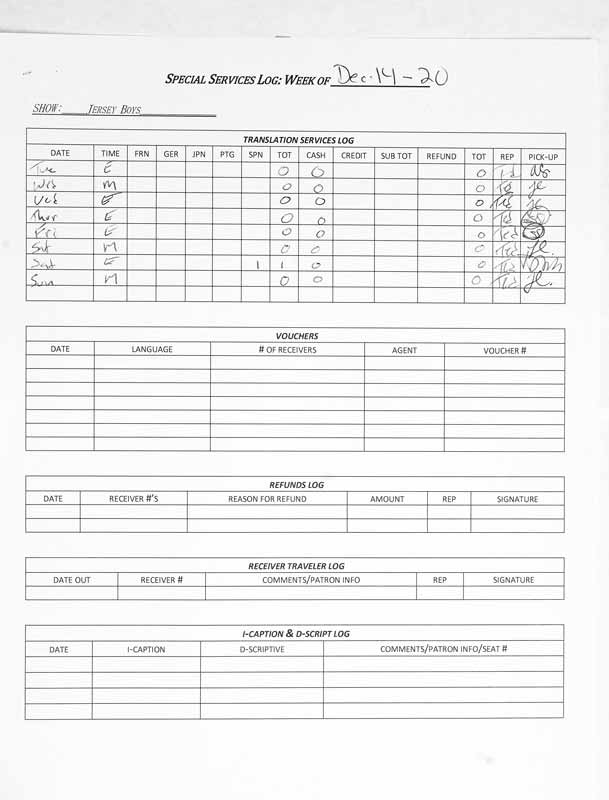 SPECIAL SERVICES LOG: WEEK OF Dec. 14 - 20
SHOW: JERSEY BOYS
TRANSLATION SERVICES LOG
DATE TIME FRN GER JPN PTG SPN TOT CASH CREDIT SUB TOT REFUND TOT REP PICK-UP
Tue E 0 0 0 Td
Wed M 0 0 0 Td
Wed E 0 0 0 Ted
Thur E 0 0 0 Ted
Fri E 0 0 0 Ted
Sat M 0 0 0 Ted
Sat E 1 1 0 0 Ted
Sun M 0 0 0 Ted
VOUCHERS
DATE LANGUAGE # OF RECEIVERS AGENT VOUCHER #
REFUNDS LOG
DATE RECEIVER #'S REASON FOR REFUND AMOUNT REP SIGNATURE
RECEIVER TRAVELER LOG
DATE OUT RECEIVER # COMMENTS/PATRON INFO REP SIGNATURE
I-CAPTION & D-SCRIPT LOG
DATE I-CAPTION D-SCRIPTIVE COMMENTS/PATRON INFO/SEAT #